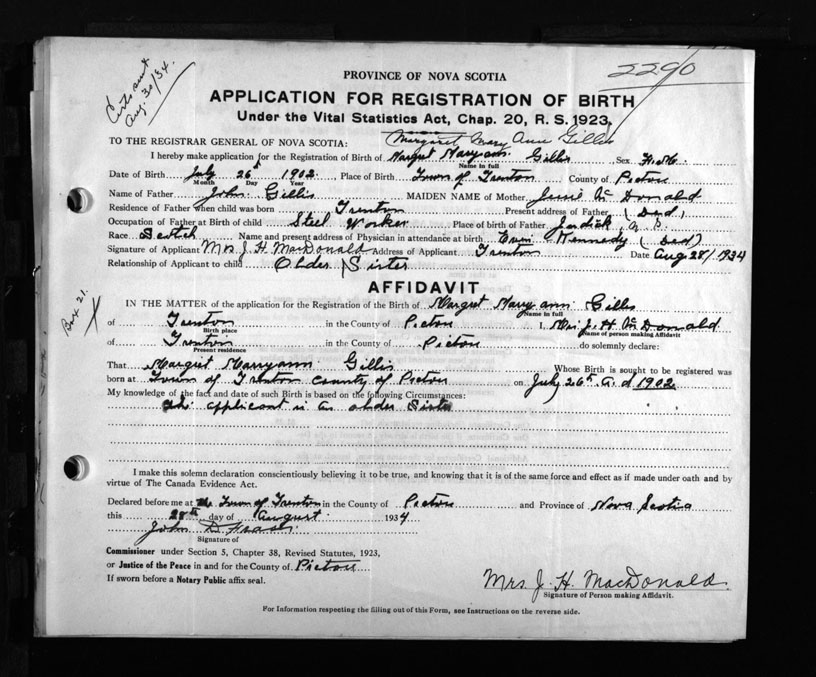 Certs sent
Aug. 30/34.
2290
PROVINCE OF NOVA SCOTIA
APPLICATION FOR REGISTRATION OF BIRTH
Under the Vital Statistics Act, Chap. 20, R. S. 1923.
Margaret Mary Anne Gillis
TO THE REGISTRAR GENERAL OF NOVA SCOTIA:
I hereby make application for the Registration of Birth of Margret Maryann Gillis Sex
Name in full
Date of Birth July 26th 1902 Place of Birth Town of Trenton County of Pictou
Month Day Year
Name of Father John Gillis MAIDEN NAME of Mother McDonald
Residence of Father when child was born Trenton Present address of Father (Ded)
Occupation of Father at Birth of child Steel Worker Place of birth of Father
Race Scotch Name and present address of Physician in attendance at birth Kennedy (Ded)
Signature of Applicant Mrs J. H. MacDonald Address of Applicant Trenton Date Aug 28/1934
Relationship of Applicant to child Older Sister
AFFIDAVIT
Box 21.
IN THE MATTER of the application for the Registration of the Birth of Margret Mary ann Gillis
Name in full
of Trenton in the County of Pictou I, Mrs J. H. McDonald
Birth place Name of person making Affidavit
of Trenton in the County of Pictou do solemnly declare:
Present residence
That Margret Marryann Gillis Whose Birth is sought to be registered was
born at Town of Trenton County of Pictou on July 26th a. d 1902
My knowledge of the fact and date of such Birth is based on the following Circumstances:
The applicant is an older Sister
I make this solemn declaration conscientiously believing it to be true, and knowing that it is of the same force and effect as if made under oath and by
virtue of The Canada Evidence Act.
Declared before me at the Town of Trenton in the County of Pictou and Province of Nova Scotia
this 28th day of August 1934
John D. Fraser
Signature of
Commissioner under Section 5, Chapter 38, Revised Statutes, 1923,
or Justice of the Peace in and for the County of Pictou
If sworn before a Notary Public affix seal.
Mrs. J. H. MacDonald
Signature of Person making Affidavit.
For Information respecting the filling out of this Form, see Instructions on the reverse side.